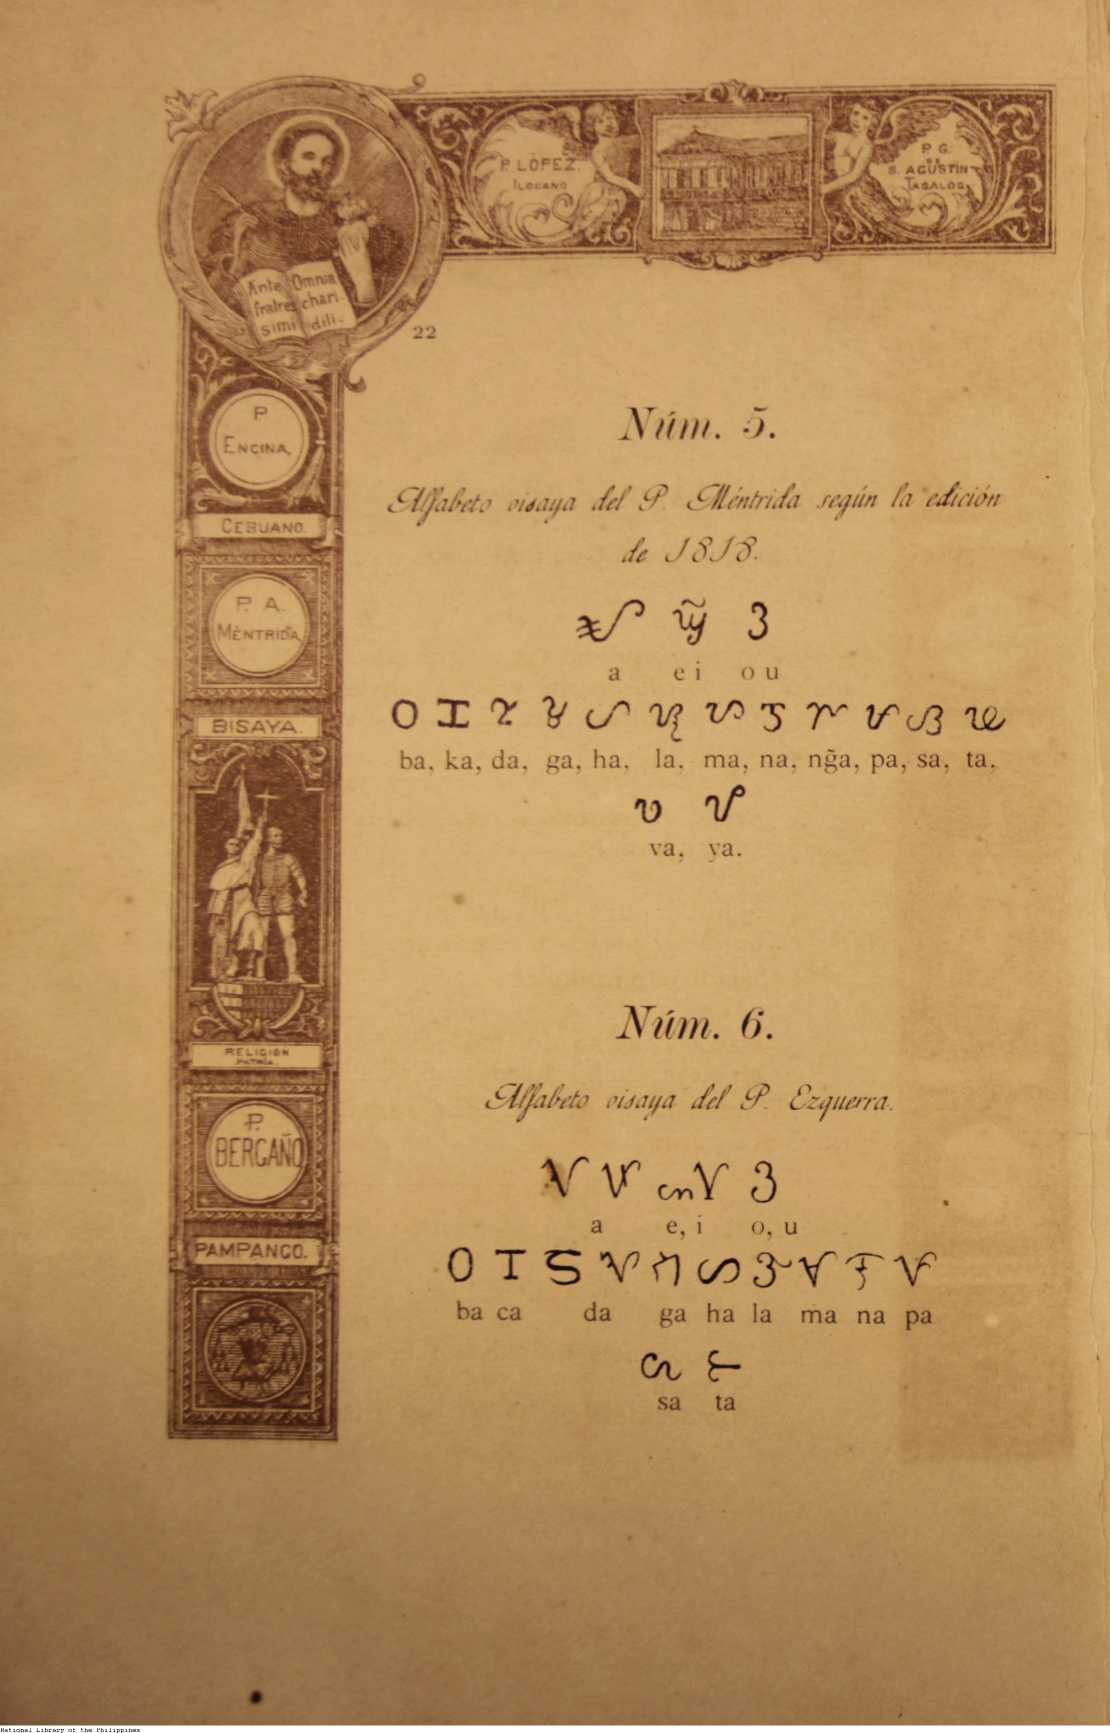 P. LÓPEZ.
ILOCANO
P. G.
DE
S. AGUSTIN
TAGALOG
Ante Omnia
fratres chari-
simi dili-
22
P
ENCINA,
CEBUANO.
P. A.
MÉNTRIDA
BISAYA.
RELIGION
PATRIA
P.
BERGAÑO
PAMPANGO.
Núm. 5.
Alfabeto visaya del P. Méntrida según la edición
de 1818.
a ei ou
ba, ka, da, ga, ha, la, ma, na, ng̃a, pa, sa, ta,
va, ya.
Núm. 6.
Alfabeto visaya del P. Ezquerra.
a e, i o, u
ba ca da ga ha la ma na pa
sa ta
National Library of the Philippines